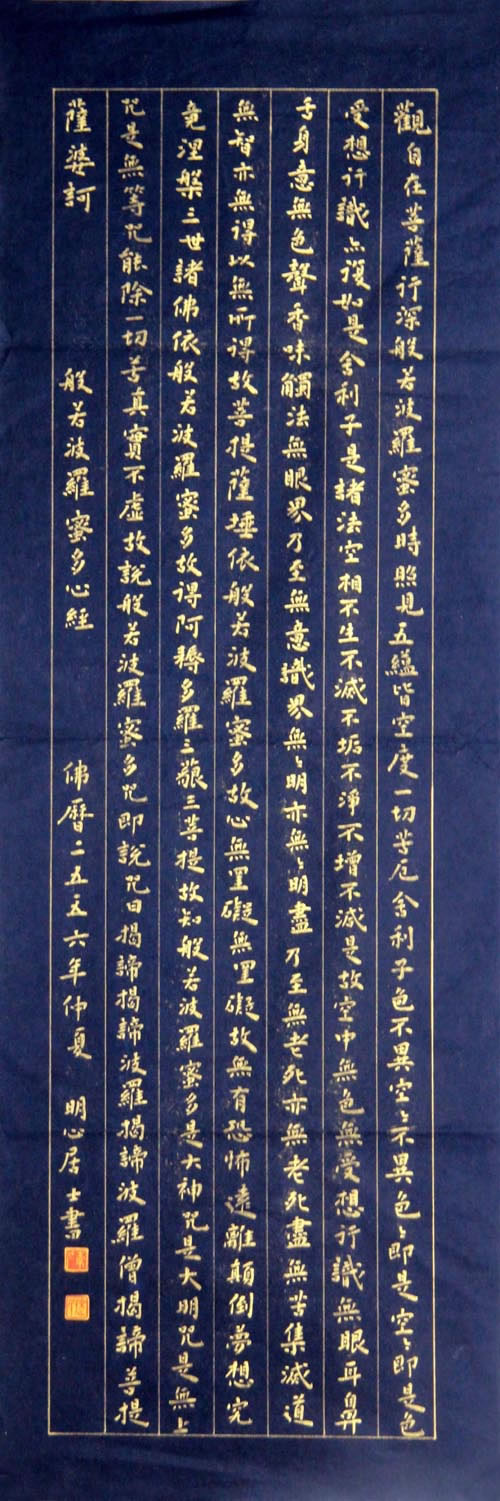 觀自在菩薩行深般若波羅蜜多時照見五蘊皆空度一切苦厄舍利子色不異空〻不異色〻即是空〻即是色
受想行識亦復如是舍利子是諸法空相不生不滅不垢不淨不增不減是故空中無色無受想行識無眼耳鼻
舌身意無色聲香味觸法無眼界乃至無意識界無〻明亦無〻明盡乃至無老死亦無老死盡無苦集滅道
無智亦無得以無所得故菩提薩埵依般若波羅蜜多故心無罣礙無罣礙故無有恐怖遠離顛倒夢想究
竟涅槃三世諸佛依般若波羅蜜多故得阿耨多羅三藐三菩提故知般若波羅蜜多是大神咒是大明咒是無上
咒是無等咒能除一切苦真實不虛故說般若波羅蜜多咒即說咒曰揭諦揭諦波羅揭諦波羅僧揭諦菩提
薩婆訶 般若波羅蜜多心經 佛曆二五五六年仲夏 明心居士書